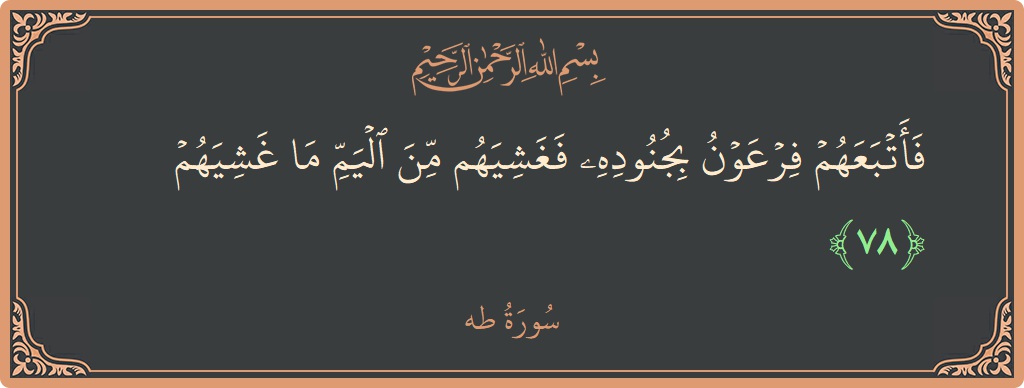 بِسْمِ اللهِ الرَّحْمٰنِ الرَّحِيْمِ
فَأَتْبَعَهُمْ فِرْعَوْنُ بِجُنُودِهِۦ فَغَشِيَهُم مِّنَ ٱلْيَمِّ مَا غَشِيَهُمْ
﴿٧٨﴾
سُورَةُ طه